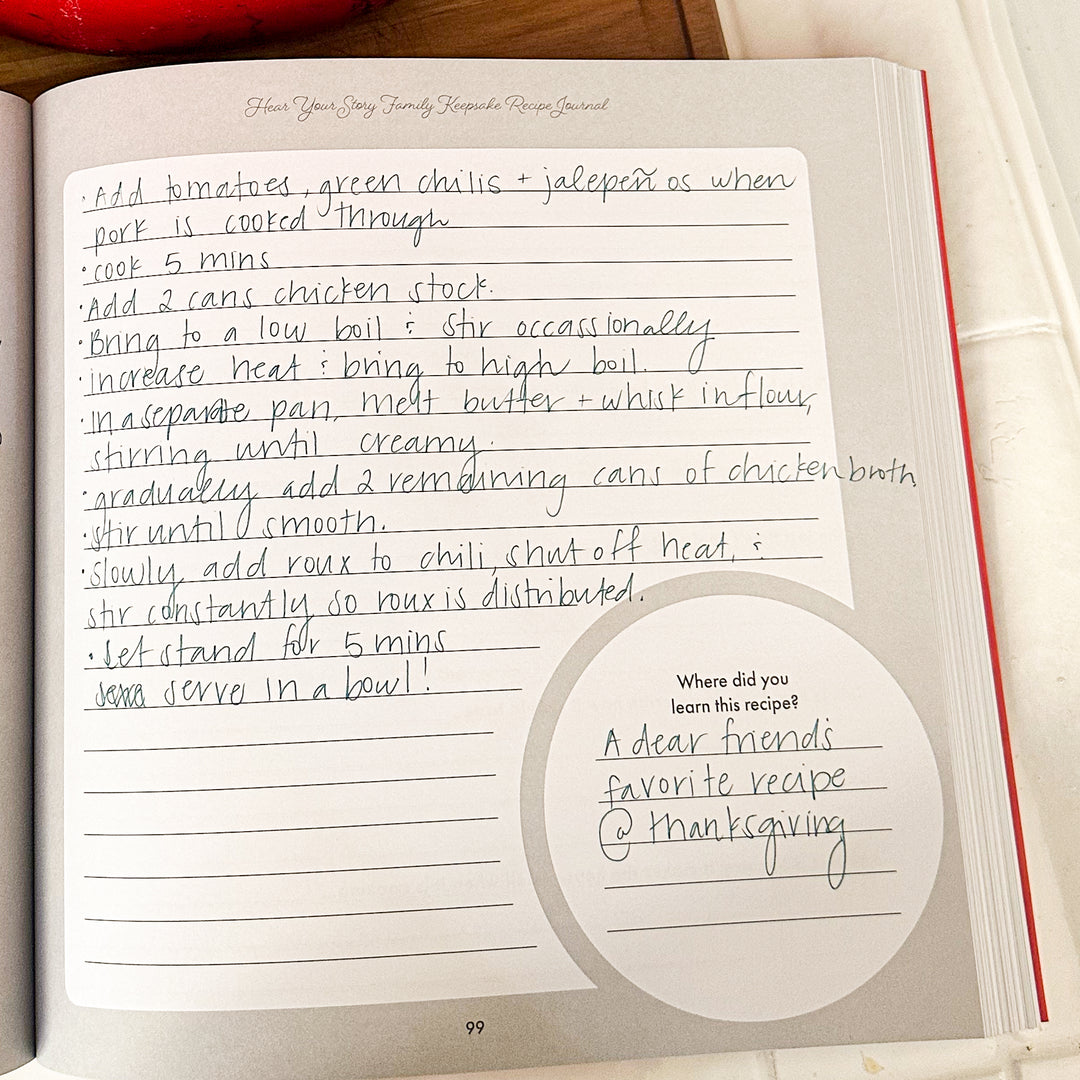 Hear Your Story Family Keepsake Recipe Journal
· Add tomatoes, green chilis + jalepeñ os when
pork is cooked through
· cook 5 mins
· Add 2 cans chicken stock.
· Bring to a low boil & stir occassionally
· increase heat & bring to high boil.
· In a separate pan, melt butter + whisk in flour,
stirring until creamy.
· gradually add 2 remaining cans of chicken broth.
· stir until smooth.
· slowly add roux to chili, shut off heat, &
stir constantly so roux is distributed.
· Let stand for 5 mins
serve in a bowl!
Where did you
learn this recipe?
A dear friends
favorite recipe
@ thanksgiving
99